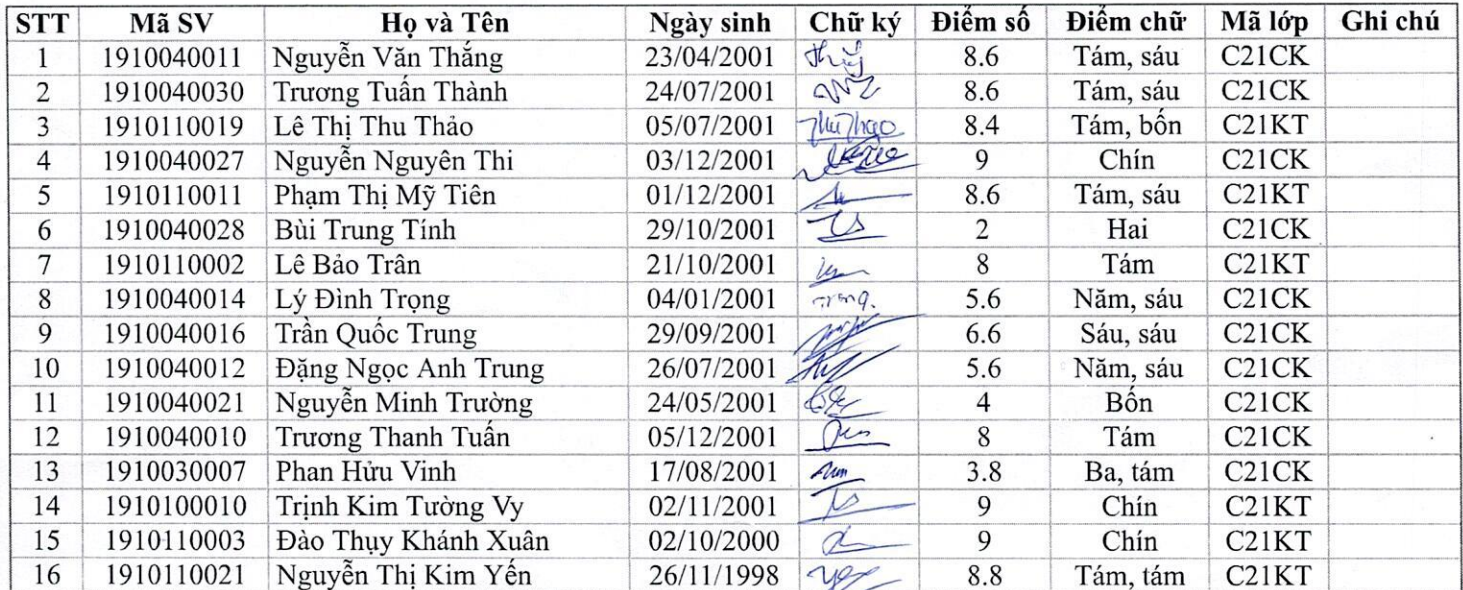 STT Mã SV Họ và Tên Ngày sinh Chữ ký Điểm số Điểm chữ Mã lớp Ghi chú
1 1910040011 Nguyễn Văn Thắng 23/04/2001 8.6 Tám, sáu C21CK
2 1910040030 Trương Tuấn Thành 24/07/2001 8.6 Tám, sáu C21CK
3 1910110019 Lê Thị Thu Thảo 05/07/2001 Thu Thao 8.4 Tám, bốn C21KT
4 1910040027 Nguyễn Nguyên Thi 03/12/2001 9 Chín C21CK
5 1910110011 Phạm Thị Mỹ Tiên 01/12/2001 8.6 Tám, sáu C21KT
6 1910040028 Bùi Trung Tính 29/10/2001 2 Hai C21CK
7 1910110002 Lê Bảo Trân 21/10/2001 8 Tám C21KT
8 1910040014 Lý Đình Trọng 04/01/2001 5.6 Năm, sáu C21CK
9 1910040016 Trần Quốc Trung 29/09/2001 6.6 Sáu, sáu C21CK
10 1910040012 Đặng Ngọc Anh Trung 26/07/2001 5.6 Năm, sáu C21CK
11 1910040021 Nguyễn Minh Trường 24/05/2001 4 Bốn C21CK
12 1910040010 Trương Thanh Tuấn 05/12/2001 8 Tám C21CK
13 1910030007 Phan Hửu Vinh 17/08/2001 3.8 Ba, tám C21CK
14 1910100010 Trịnh Kim Tường Vy 02/11/2001 9 Chín C21KT
15 1910110003 Đào Thụy Khánh Xuân 02/10/2000 9 Chín C21KT
16 1910110021 Nguyễn Thị Kim Yến 26/11/1998 8.8 Tám, tám C21KT